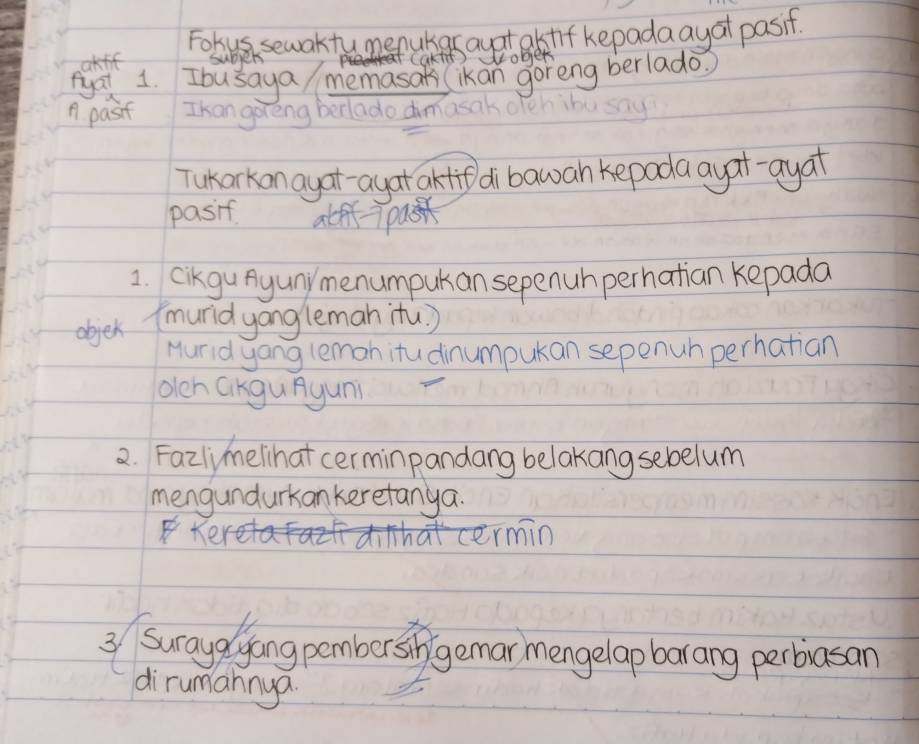 Fokus sewaktu menukar ayat aktif kepada ayat pasif.
subjek (aktif) objek
aktif
Ayat 1. Ibu saya / memasak (ikan goreng berlado.)
A. pasif Ikan goreng berlado dimasak oleh ibu saya
Tukarkan ayat-ayat aktif di bawah kepada ayat-ayat
pasif. aktif → pasif
1. Cikgu Ayuni / menumpukan sepenuh perhatian kepada
objek (murid yang lemah itu.)
Murid yang lemah itu dinumpukan sepenuh perhatian
oleh Cikgu Ayuni
2. Fazli / melihat cermin pandang belakang sebelum
mengundurkan keretanya.
Kereta Fazli dilihat cermin
3. (Suraya yang pembersih gemar) mengelap barang perbiasan
di rumahnya.